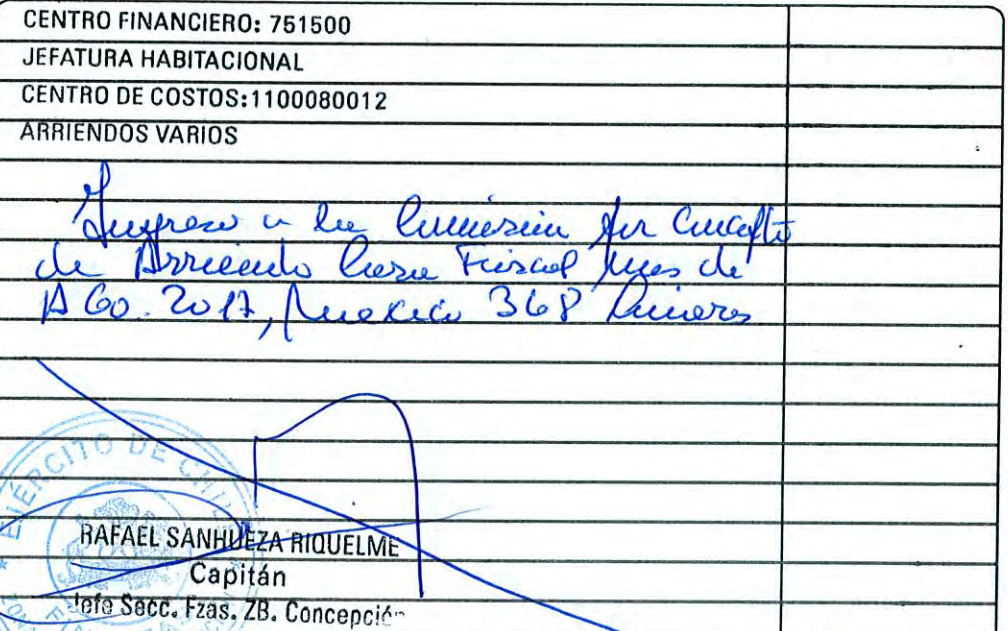 CENTRO FINANCIERO: 751500
JEFATURA HABITACIONAL
CENTRO DE COSTOS:1100080012
ARRIENDOS VARIOS
Ingreso a la Comisión por Concepto
de Arriendo Casa Fiscal mes de
AGO. 2017, Mexico 368 Linares
EJÉRCITO DE CHILE
RAFAEL SANHUEZA RIQUELME
Capitán
Jefe Secc. Fzas. ZB. Concepción